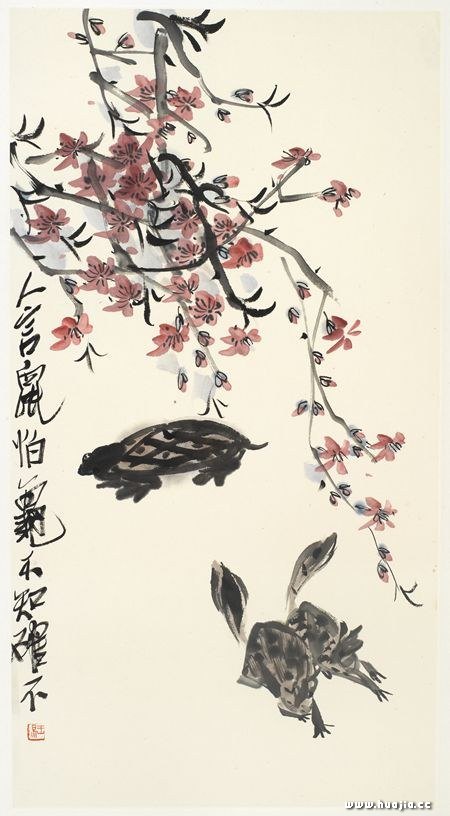 人言鼠怕龜不知確不
www.huajia.cc